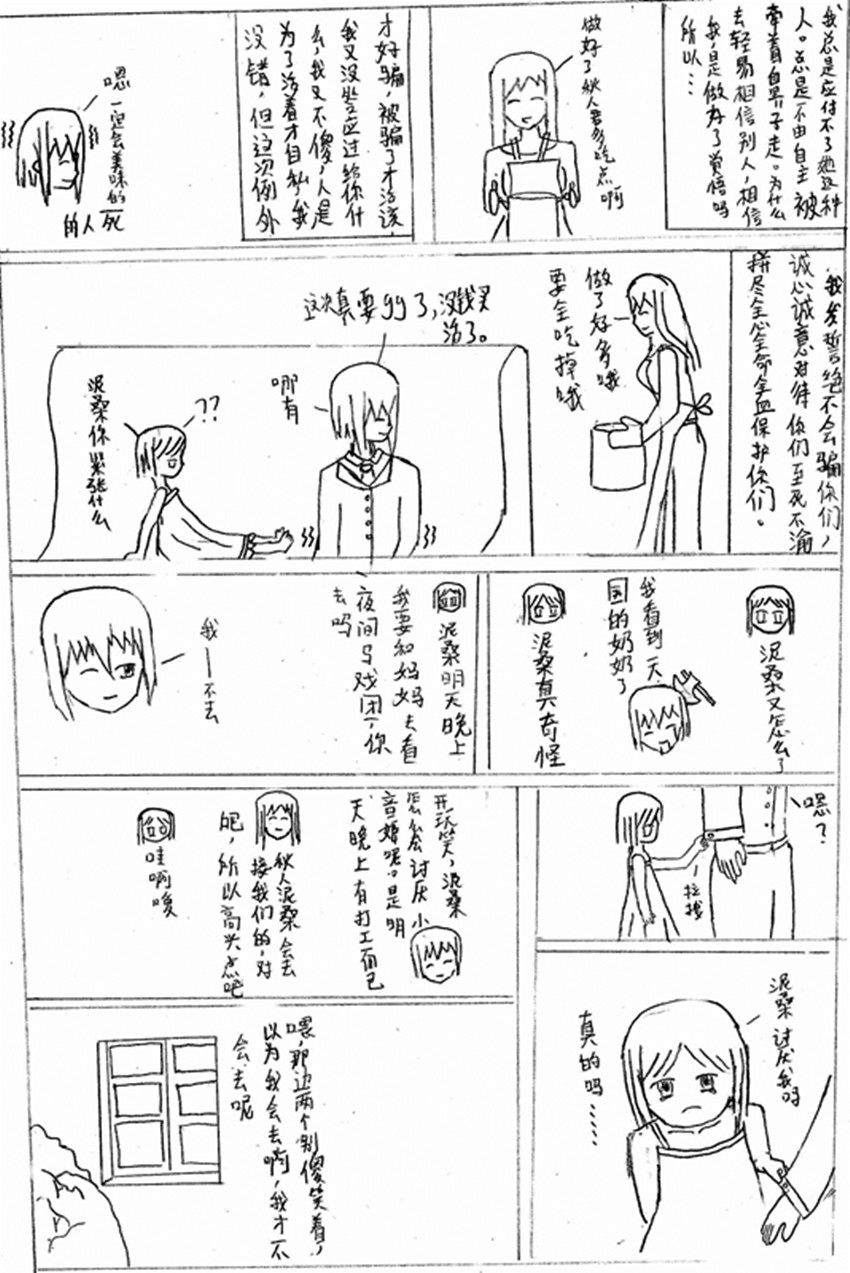 我总是应付不了她这种
人。总是不由自主被
牵着鼻子走。为什么
去轻易相信别人,相信
我,是做好了觉悟吗
所以…
做好了秋人要多吃点啊
才好骗,被骗了才活该,
我又没坐应过给你什
么,我又不傻,人是
为了活着才自私,我
没错,但这次例外
嗯一定会美味的
死
的人
我发誓绝不会骗你们,
诚心诚意对待你们至死不渝
拼尽全心全命全血保护你们。
做了好多哦
要全吃掉哦
这次真要gg了,没钱买
治了。
哪有
??
泥桑你紧张什么
泥桑又怎么了
我看到天
国的奶奶了
泥桑真奇怪
泥桑明天晚上
我要和妈妈去看
夜间马戏团,你
去吗
我—不去
嗯?
拉拽
泥桑讨厌我吗
真的吗……
开玩笑,泥桑
怎么会讨厌小
音娜呢。是明
天晚上有打工而已
秋人泥桑会去
接我们的,对
吧,所以高兴点吧
哇啊嗄
喂,那边两个别傻笑着,
以为我会去啊,我才不
会去呢